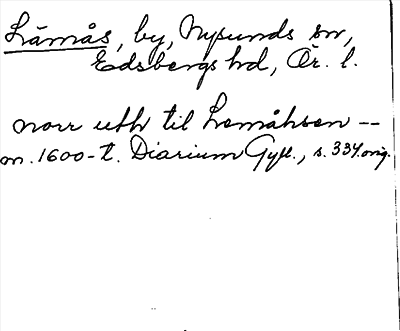 Lämås, by, Nysunds sn,
Edsbergs hd, Ör. l.
norr uth til Lemåhsen --
m. 1600-t. Diarium Gyll., s. 334 orig.